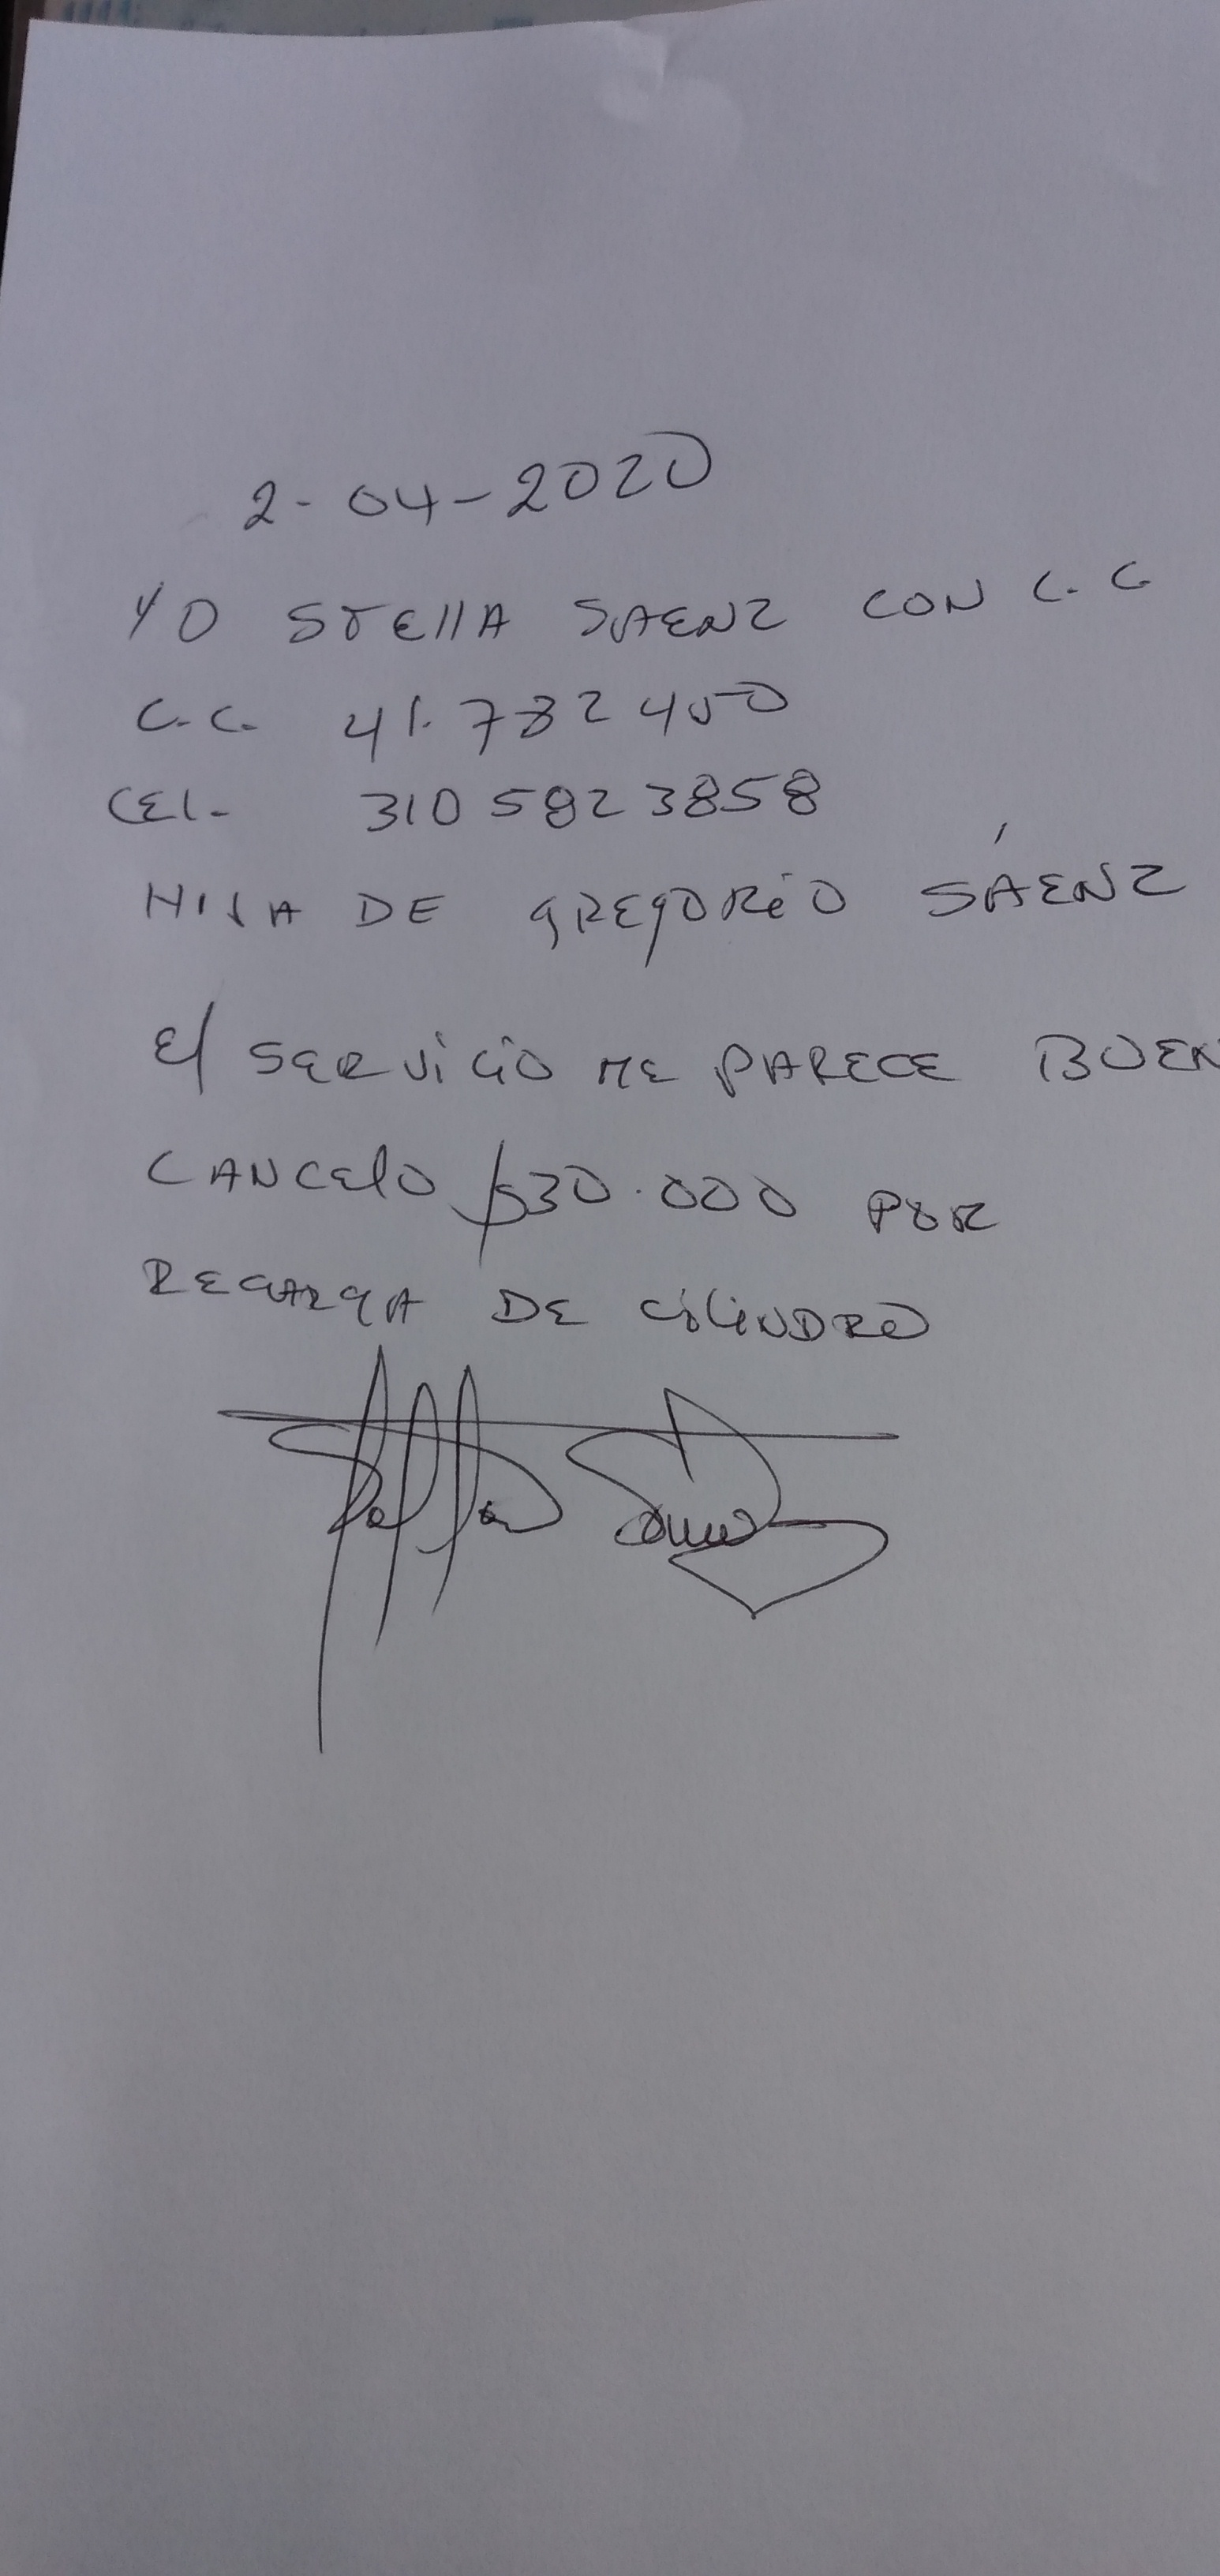 2-04-2020
YO STELLA SAENZ CON C.C
C.C. 41.782450
CEL- 3105823858
HIJA DE GREGORIO SÁENZ
El SERVICIO ME PARECE BUEN
CANCELO $30.000 POR
RECARGA DE CILINDRO